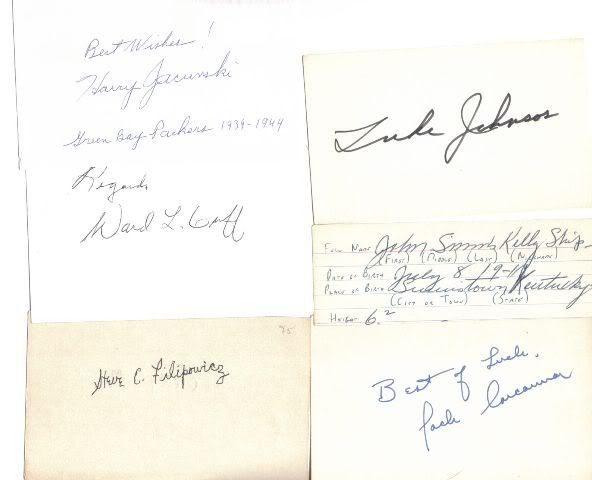 Best Wishes!
Harry Jacunski
Green Bay Packers 1939-1944
Regards
Ward L. Cuff
Luke Johnsos
FULL NAME John Simms Kelly Ship-
(FIRST) (MIDDLE) (LAST) (NICKNAME)
DATE OF BIRTH July 8
PLACE OF BIRTH Simmstown Kentucky
(CITY OR TOWN) (STATE)
HEIGHT 6.2
Steve C. Filipowicz
Best of Luck.
Jack Concannon